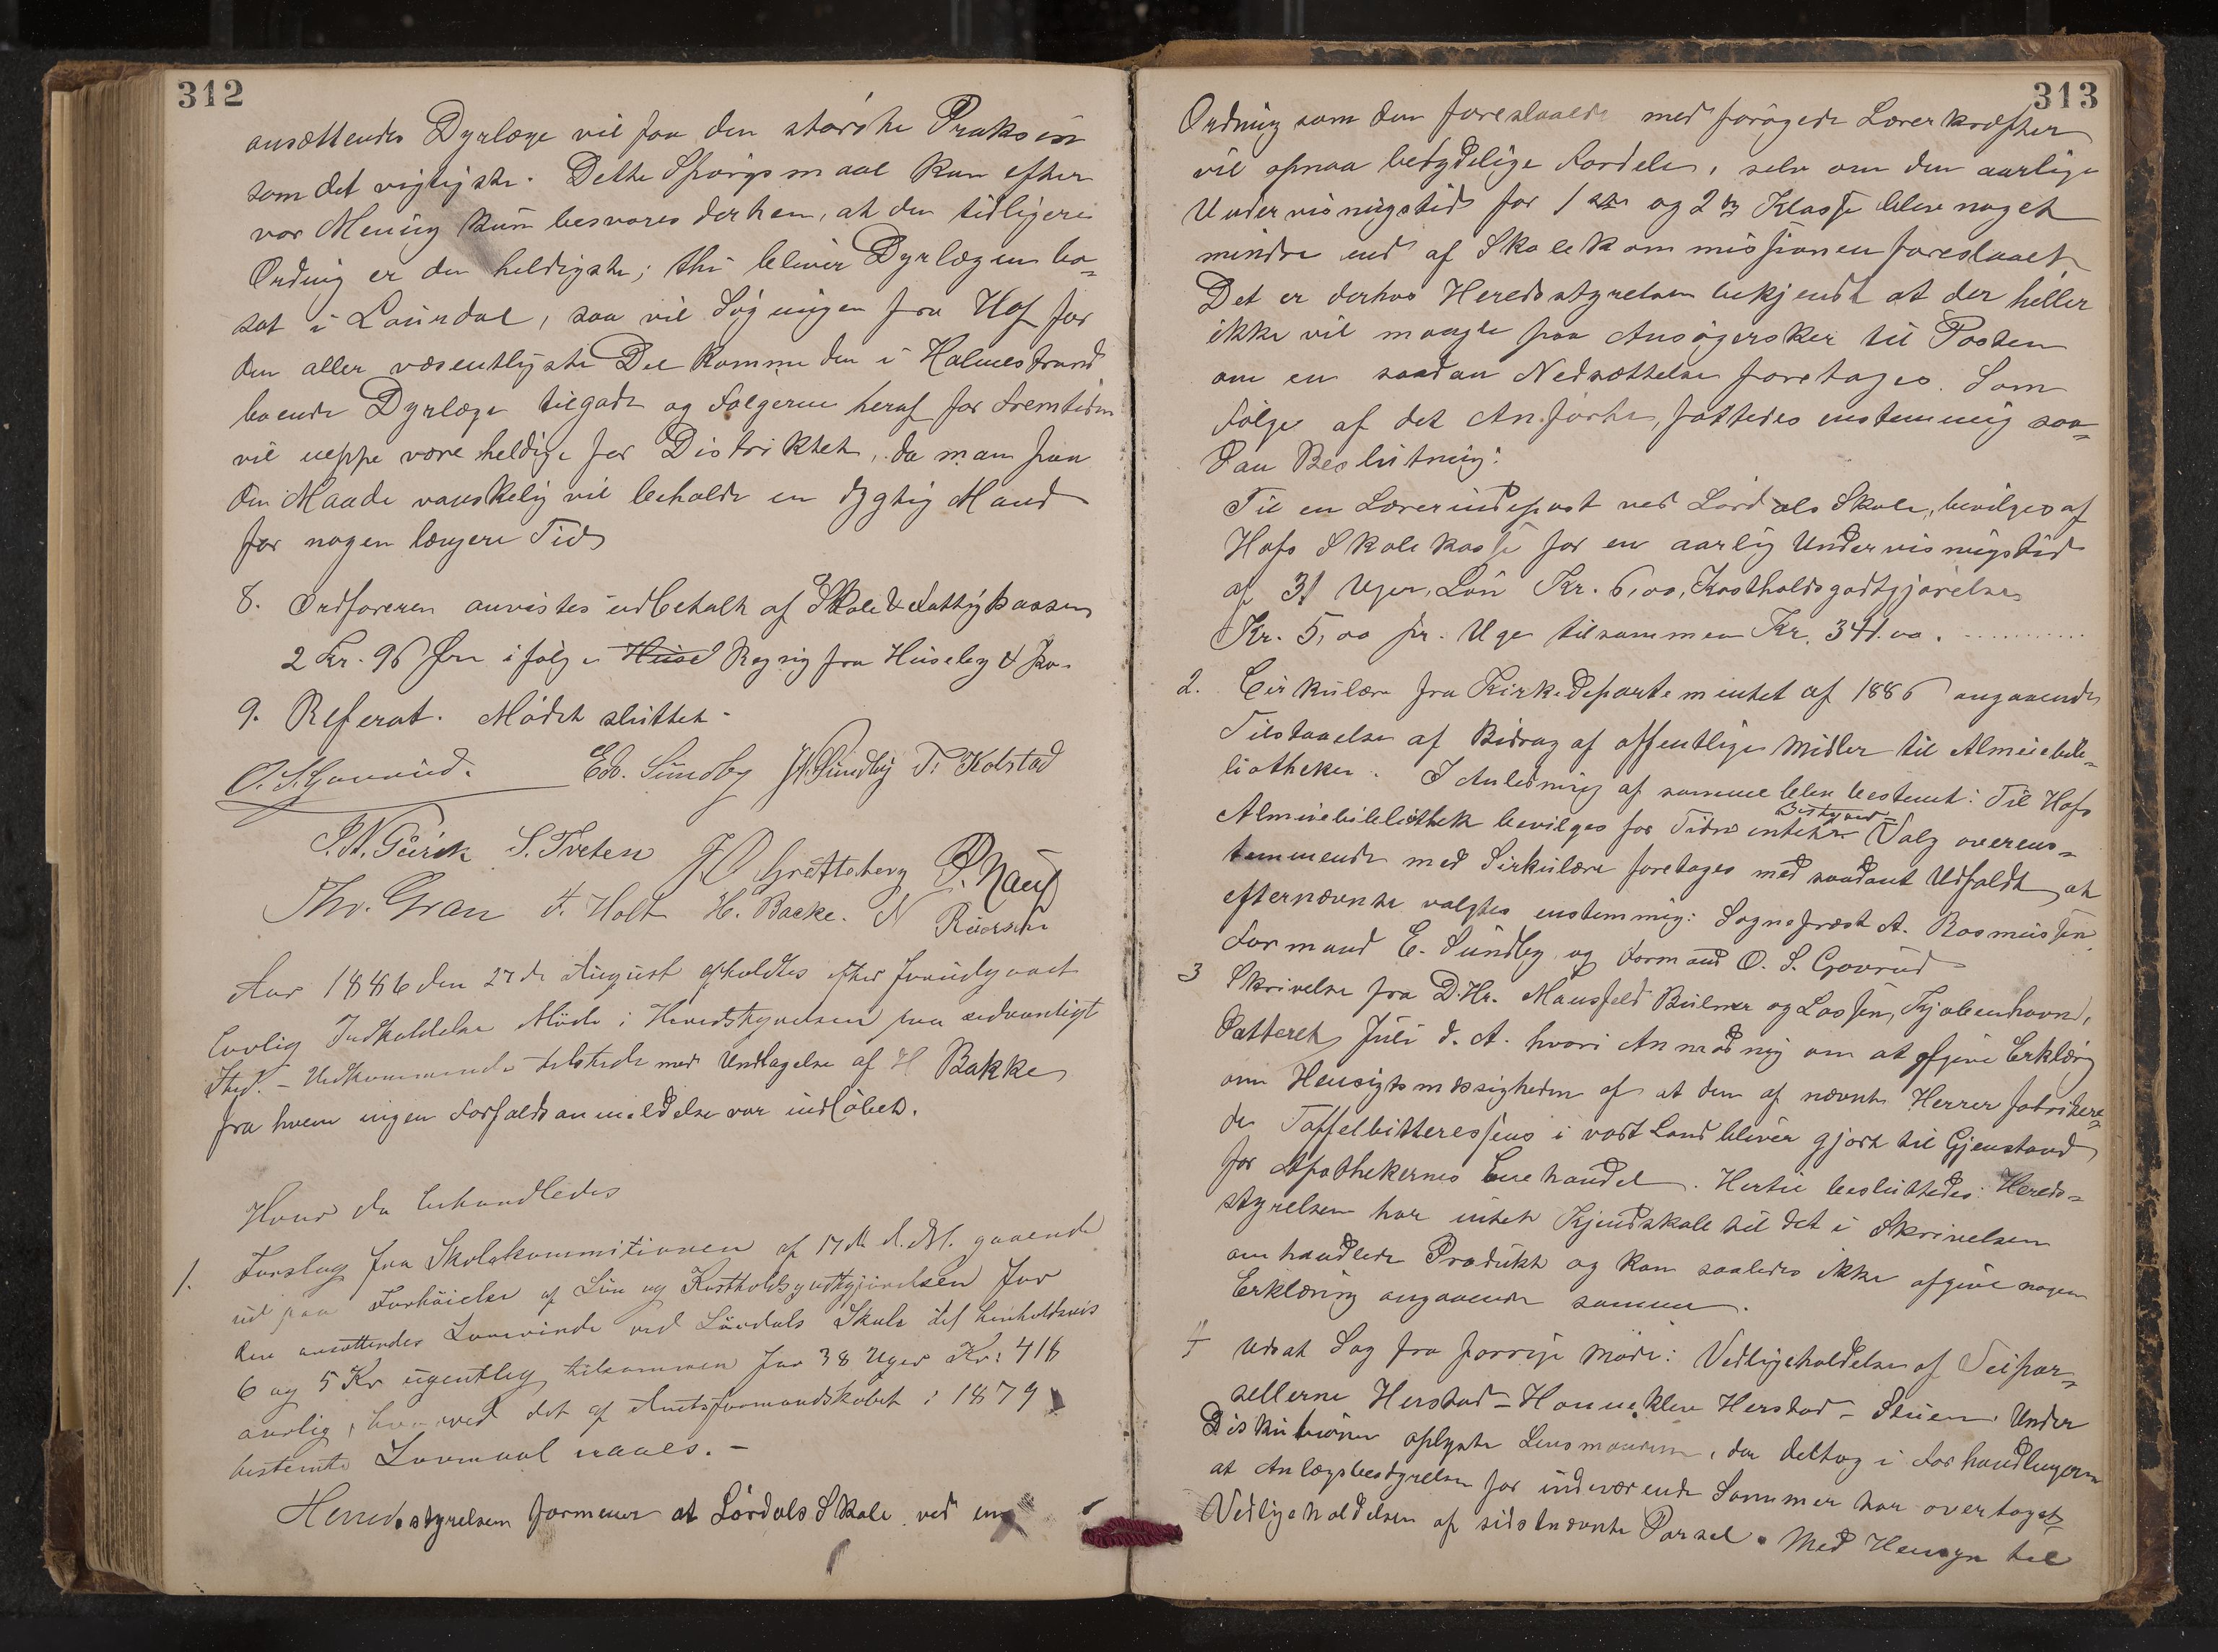 312
ansættendes Dyrlæge vil faa den største Praksis
som det vigtigste. Dette Spørgsmaal kan efter
vor Mening kun besvares derhen, at den tidligere
Ordning er den heldigste; thi bliver Dyrlægen bo-
sat i Laurdal, saa vil Søgningen fra Hof for
den aller væsentligste Del komme den i Holmestrand
boende Dyrlæge tilgode og Følgerne heraf for Fremtiden
vil neppe være heldige for Distriktet, da man paa
den Maade vanskelig vil beholde en dygtig Mand
for nogen længere Tid
8. Ordføreren anvistes udbetalt af Skole & Fattigkassen
2 Kr. 96 Øre ifølge Huse Regnig fra Huseby & Ko.
9. Referat. Mødet sluttet.
O. S. Gourud. Edv. Sundby Sundby T. Kolstad
P. N. Teirek S. Tveten J O Grettebery P. Nauf
Thv. Gran F. Holt H. Backe. N Riiersen
Aar 1886 den 27de August afholdtes efter foreudgaaet
lovlig Indkaldelse Møde i Heredstyrelsen paa sedvanligt
Sted. - Vedkommende tilstede med Undtagelse af H Bakke
fra hvem ingen Forfaldsanmeldelse var indløbet.
Hvor da behandledes
1. Forslag fra Skolekommitionen af 17de d.M. gaaende
ud paa Forhøielse af Løn og Kostholdsgodtgjørelsen for
den ansættendes Lærerinde ved Lørdals Skole til henholdsvis
6 og 5 Kr ugentlig, tilsammen for 38 Uger Kr: 418
aarlig, hvorved det af Amtsformandskabet i 1879
bestemte Lovmaal naaes. -
Heredsstyrelsen formener at Lørdals Skole ved en
313
Ordning som den foreslaaede med forøgede Lærerkræfter
vil opnaa betydelige Fordele, selv om den aarlige
Undervisningstid for 1ste og 2den Klasse blev noget
mindre end af Skolekommissionen foreslaaet
Det er derhos Heredsstyrelsen bekjendt at der heller
ikke vil mangle paa Ansøgersker til Posten
om en saadan Nedsættelse foretages. Som
Følge af det Anførte, fattedes enstemmig saa-
dan Beslutning:
Til en Lærerindepost ved Lørdals Skole, bevilges af
Hofs Skolekasse for en aarlig Undervisningstid
af 31 Uger, Løn Kr. 6,00, Kostholdsgodtgjørelse
Kr. 5,00 pr. Uge tilsammen Kr. 341.00. ..........
2. Cirkulære fra Kirkedepartementet af 1886 angaaende
Tilstaaelse af Bidrag af offentlige Midler til Almuebib-
liotheker. I Anledning af samme blev bestemt: Til Hofs
Almuebibliothek bevilges for Tiden intet. Bestyrer Valg overens-
temmende med Sirkulære foretages med saadant Udfaldt, at
efternævnte valgtes enstemmig: Sogneprest A. Rosmussen
Formand E. Sundby og Formand O. S. Gourud
3 Skrivelse fra D.Hr. Mansfeld Bülner og Lassen, Kjøbenhavn,
Datteret Juli d. A. hvori Anmodning om at afgive Erklæring
om Hensigtsmæssigheden af at den af nævnte Herrer fabrikere-
de Taffelbitteressens i vort Land bliver gjort til Gjenstand
for Apothekernes Enehandel. Hertil besluttedes: Hereds-
styrelsen har intet Kjendskab til det i Skrivelsen
omhandlede Produkt og kan saaledes ikke afgive nogen
Erklæring angaaende samme.
4 Udsat Sag fra forrige Møde: Vedligeholdelse af Veipar-
sellerne Herstad - Hanekleve Herstad - Stuen. Under
Diskutionen oplyste Lensmanden, der deltog i Forhandlingerne
at Anlægsbestyrelsen for indeværende Sommer har overtaget
Vedligeholdelsen af sidstnævnte Parsel. Med Hensyn til